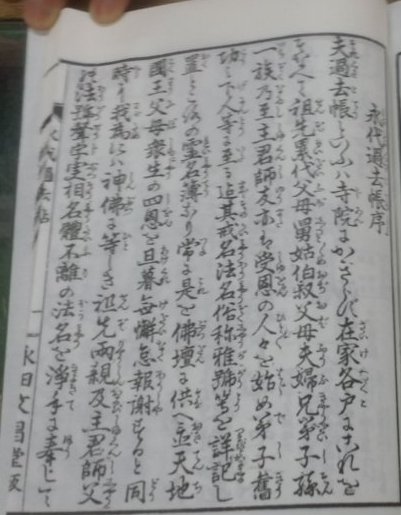 永代過去帳序
夫過去帳といふハ寺院にかぎらず在家各戸にこれを
そなへて祖先累代父母舅姑伯叔父母夫婦兄弟子孫
一族乃至主君師友亦ハ受恩の人々を始め弟子舊
功之下人等に至る迄其戒名法名俗称雅號等を詳記し
置ところの霊名簿なり常に是を佛壇に供へ置天地
國王父母衆生の四恩を旦暮毎懈怠報謝すると同
時に我為にハ神佛に等しき祖先両親及主君師父
の法號聲字実相名體不離の法名を淨手に奉じて
永田文昌堂